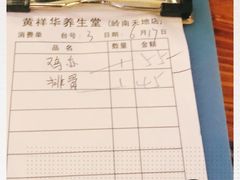 黄祥华养生堂 (岭南天地店)
消费单 台号: 3 日期: 6月17日
品名 数量 金额
1 55
排骨 1 45